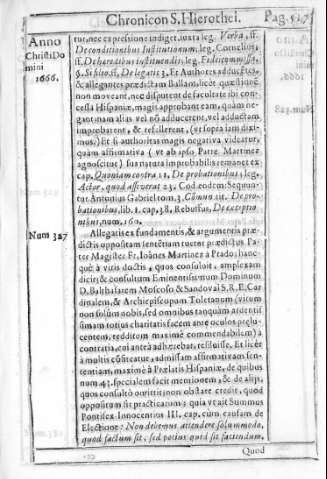 Chronicon S. Hierothei. Pag. 517
Anno
Christi Do
mini
1666.
tur, nec expressione indiget. iuxta leg. Verba, ff.
De conditionibus Institutionum, leg. Cornelius,
ff. De hæredibus instituendis, leg. Fideicommissa,
§. Si filio, ff. De legatis 3. Et Authores adductos,
& allegantes prædictam Bullam, licèt quæstionē
non moveant, nec disputent de facultate ibi con-
cessa Hispaniæ, magis approbant eam, quàm ne-
gant: nam aliàs vel nō adducerent, vel adductam
improbarent, & refellerent, (ut supra iam dixi-
mus.) Et si authoritas magis negativa videatur,
quàm affirmativa (ut ab ipso Patre Martinez
agnoscitur) sua natura improbabilis remanet ex
cap. Quoniam contra 11. De probationibus; leg.
Actor, quod asseverat 23. Cod. eodem: Sequun-
tur Antonius Gabriel tom. 3. Cōmun. tit. De pro-
bationibus, lib. 1. cap. 38. Rebuffus, De exceptio
nibus, num. 160.
Num 327
Allegatis ex fundamentis, & argumentis præ-
dictis oppositam sententiam tuetur prædictus Pa-
ter Magister Fr. Ioānes Martinez à Prado; hanc-
què à vitis doctis, quos consuluit, amplexam
dicit; & consultum Eminentissimum Dominum
D. Balthasarem Moscoso & Sandoval S. R. E. Car
dinalem, & Archiepiscopum Toletanum (virum
non solùm nobis, sed omnibus tanquàm ardentis-
simam totius charitatis facem ante oculos prælu-
centem, redditum maximè commendabilem) à
contraria, cui anteà adhærebat, resiluisse. Et licèt
à multis cōsiteatur, admissam affirmativam sen-
tentiam, maximè à Prælatis Hispaniæ, de quibus
num 43. specialem facit mentionem, & de alijs,
quos consultò omittit; non obstare credit, quod
oppositum sit practicatum: quia ut ait Summus
Pontifex Innocentius III. cap. cùm causam de
Electione: Non debemus attendere solummodo,
quod factum sit, sed potiùs quid sit faciendum.
Quod